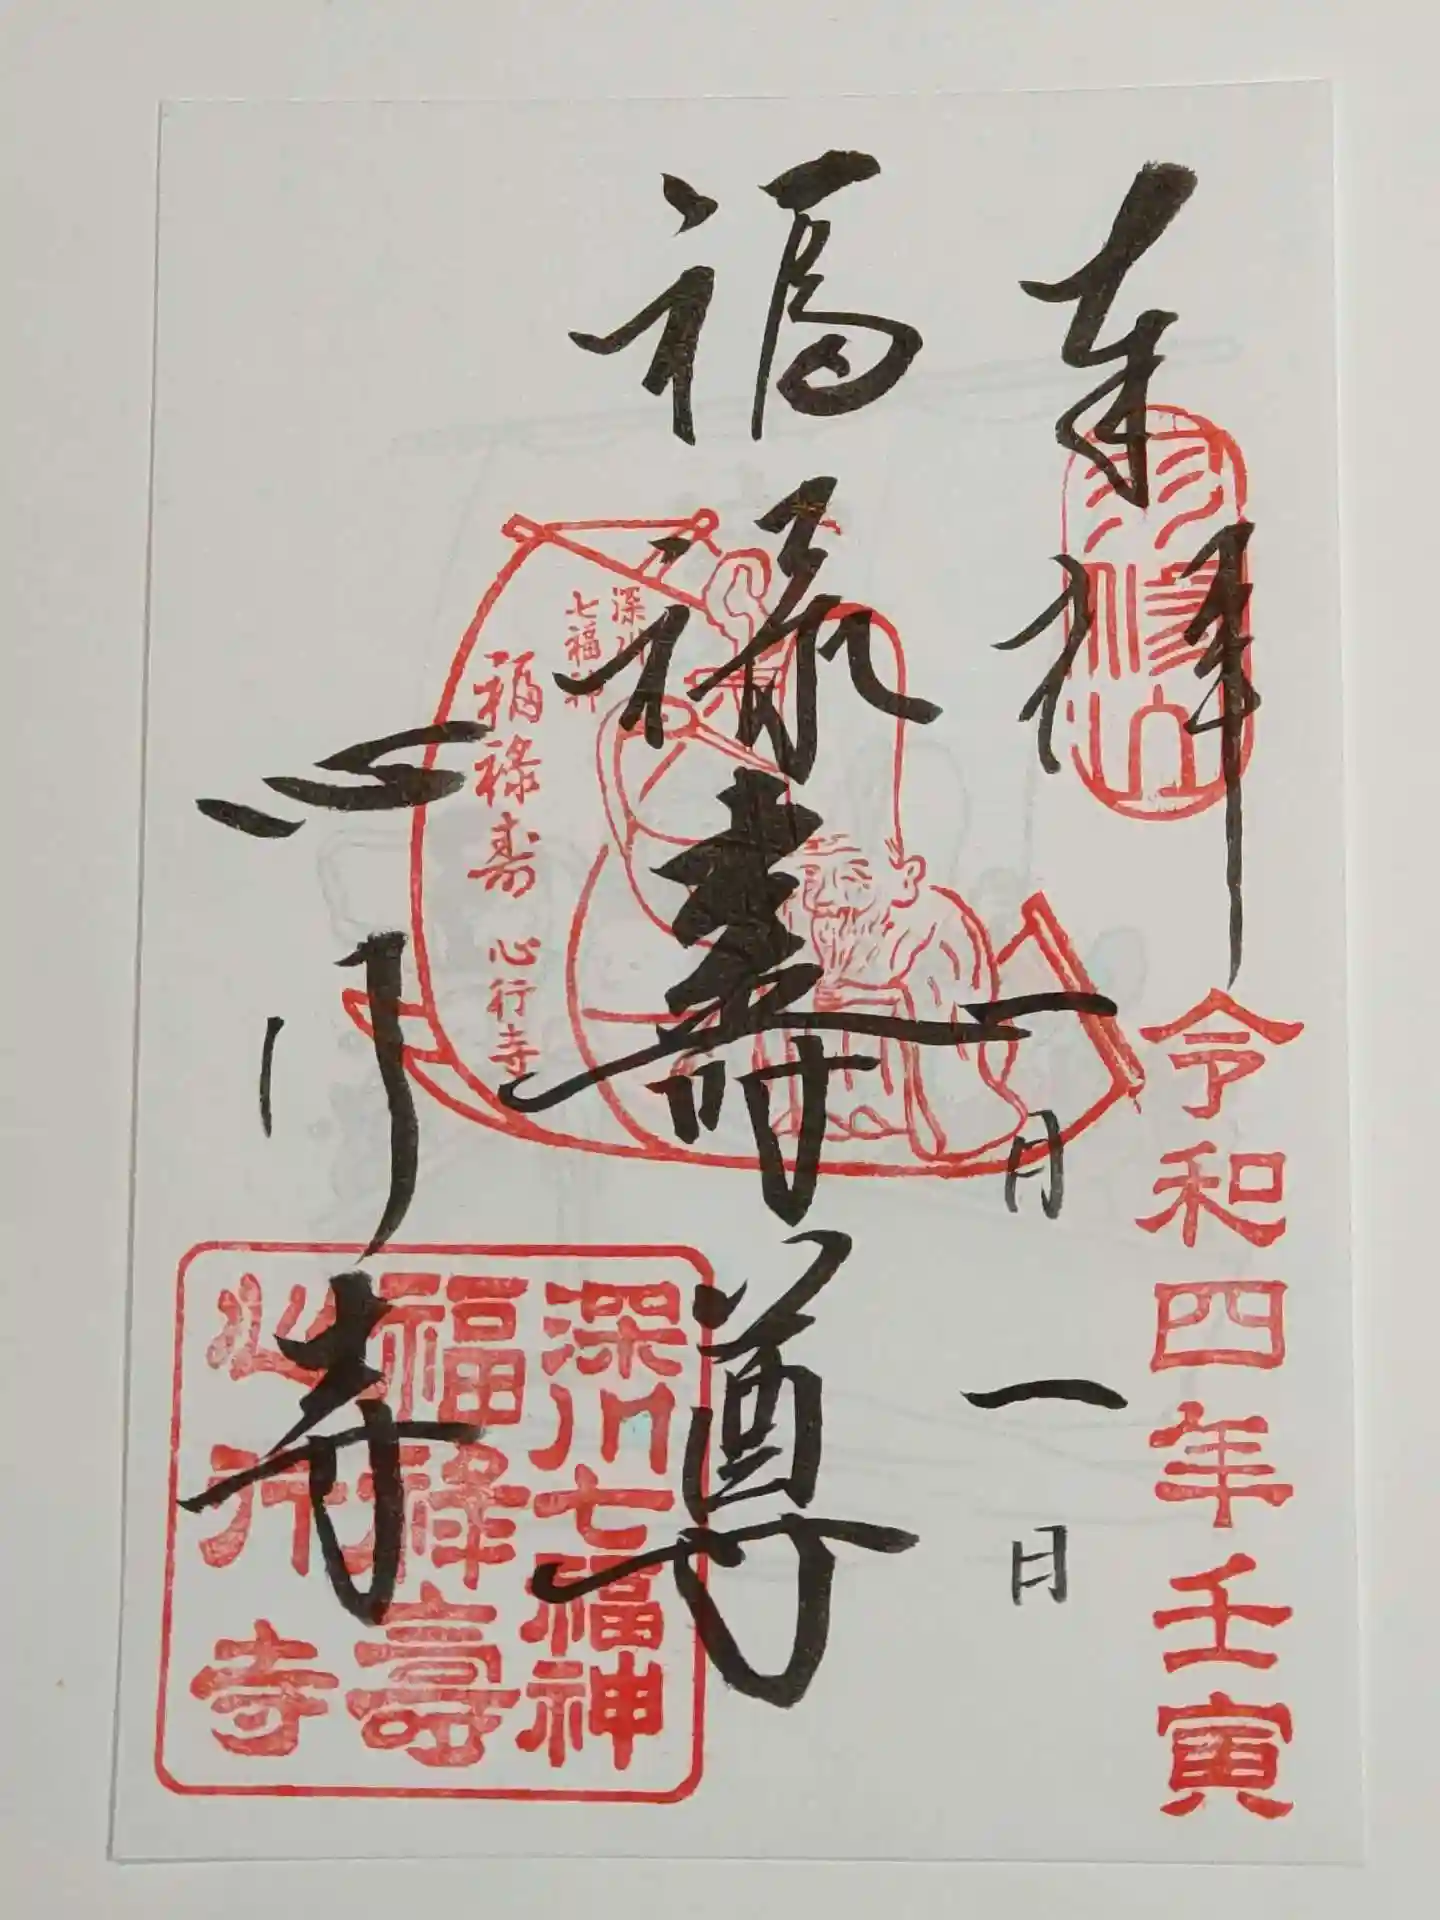 奉拝
令和四年壬寅
一月一日
福禄寿尊
心行寺
深川
七福神
福禄寿 心行寺
深川七福神
福禄壽
心行寺